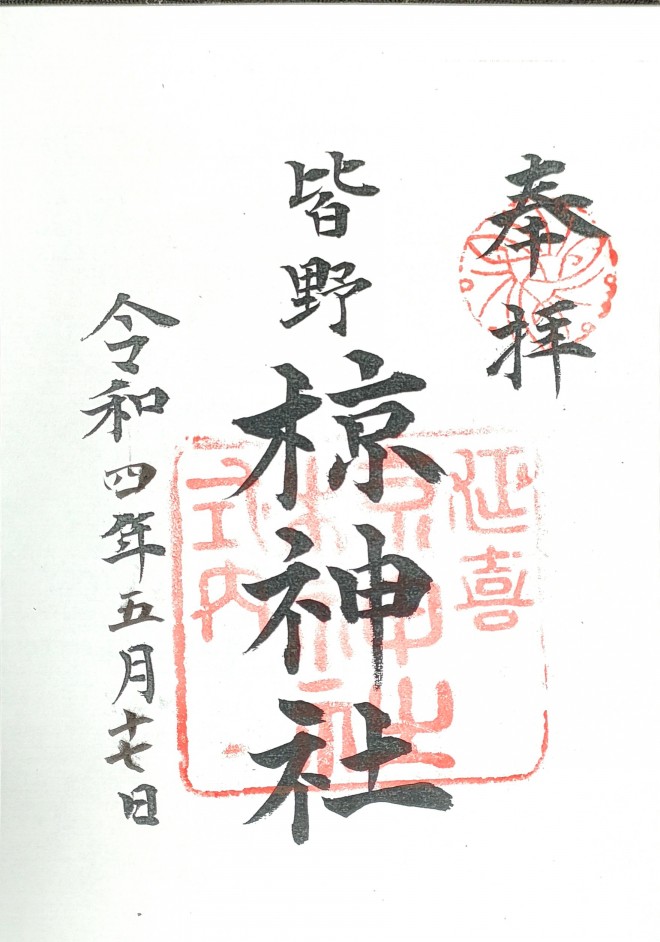 奉拝
皆野
椋神社
令和四年五月十七日
延喜
式内
椋神社